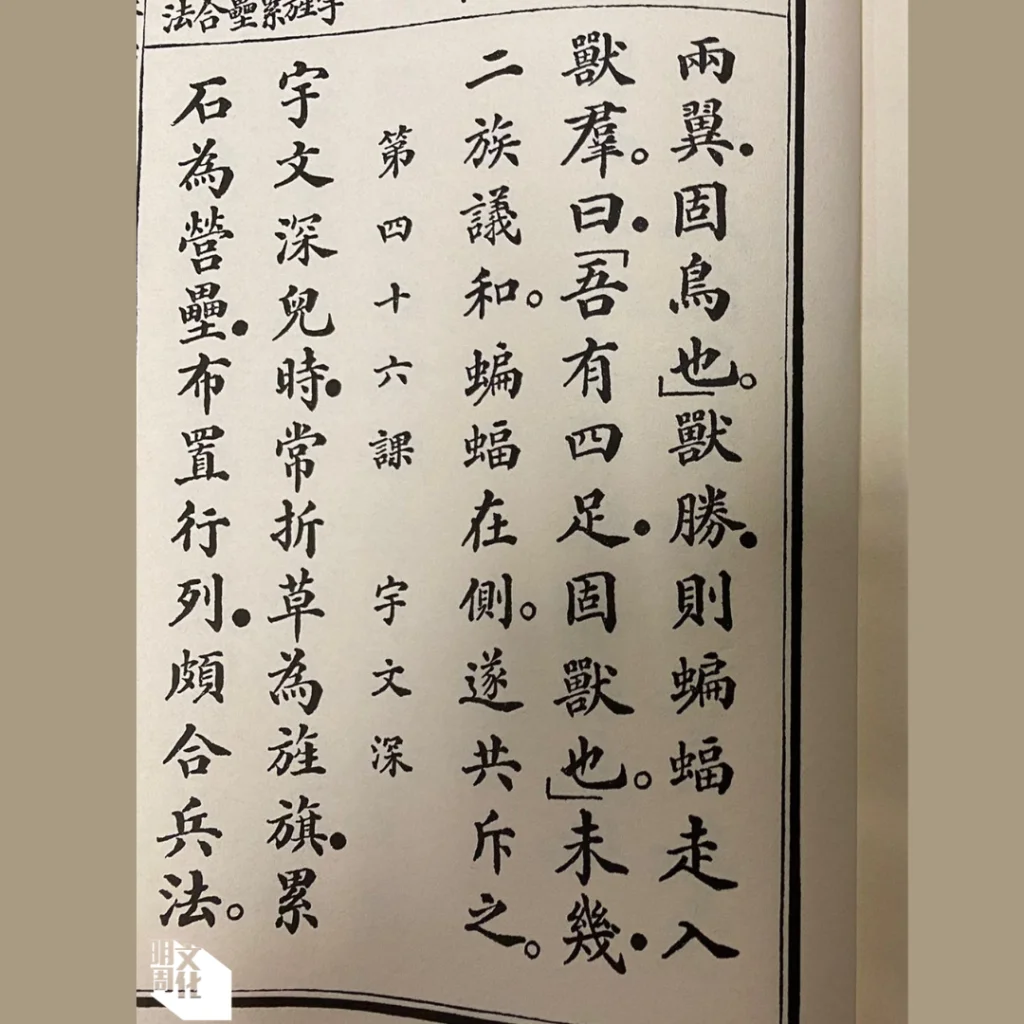 兩翼●固鳥也」○獸勝●則蝙蝠走入
獸羣○曰●「吾有四足●固獸也」○未幾●
二族議和○蝙蝠在側○遂共斥之○
第四十六課 宇文深
宇文深兒時●常折草為旌旗●累
石為營壘●布置行列●頗合兵法○
累壘合法
明周文化